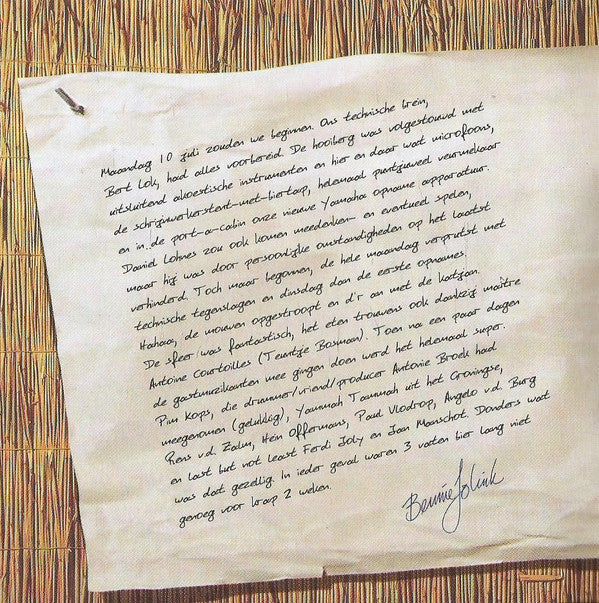 Maandag 10 juli zouden we beginnen. Ons technische brein,
Bert Lok, had alles voorbereid. De hooiberg was volgestouwd met
uitsluitend akoestische instrumenten en hier en daar wat microfoons,
de schrijnwerkerstent-met-biertap, helemaal puntjuweel vermakaar
en in de port-a-cabin onze nieuwe Yamaha opname apparatuur.
Daniel Lohues zou ook komen meedenken- en eventueel spelen,
maar hij was door persoonlijke omstandigheden op het laatst
verhinderd. Toch maar begonnen, de hele maandag verprutst met
technische tegenslagen en dinsdag dan de eerste opnames.
Hahaaa, de mouwen opgestroopt en d'r an met de katjan.
De sfeer was fantastisch, het eten trouwens ook dankzij maître
Antoine Courtoilles (Teuntje Bosman). Toen na een paar dagen
de gastmuzikanten mee gingen doen werd het helemaal super.
Pim Kops, die drummer/vriend/producer Antonie Broek had
meegenomen (gelukkig), Yammah Tammah uit het Groningse,
Rens v.d. Zalm, Hein Offermans, Paul Vlodrop, Angelo v.d. Burg
en last but not least Ferdi Joly en Jan Manschot. Donders wat
was dat gezellig. In ieder geval waren 3 vaten bier lang niet
genoeg voor krap 2 weken.
Bennie Jolink